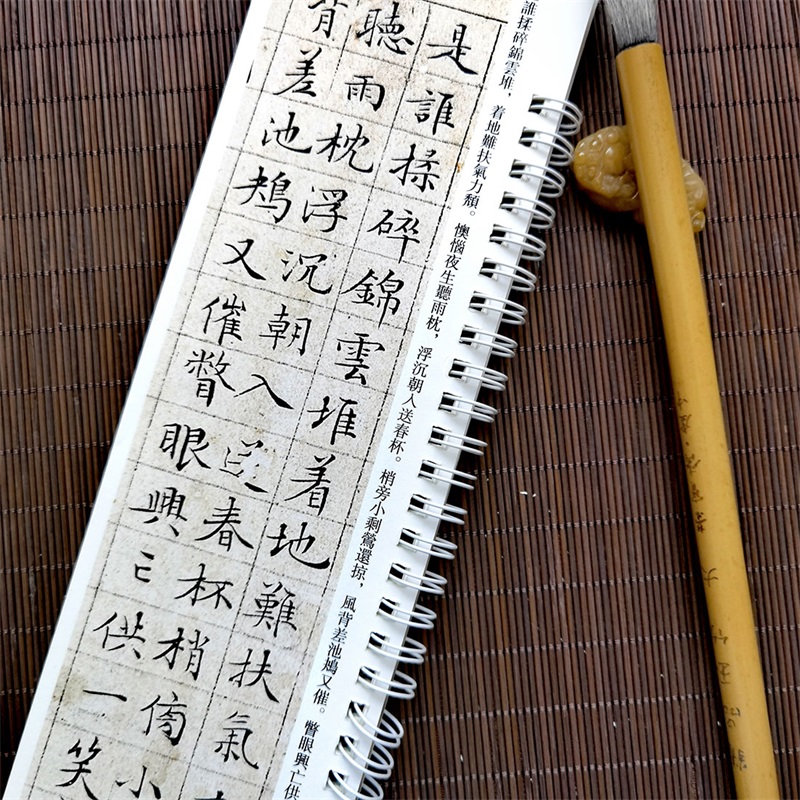 誰揉碎錦雲堆，着地難扶氣力頹。懊惱夜生聽雨枕，浮沉朝人送春杯。梢旁小剩鶯還掠，風背差池鳺又催。瞥眼興亡供
是誰揉碎錦雲堆着地難扶氣
聽雨枕浮沉朝入送春杯梢傍小
背差池鳺又催瞥眼興亡供一笑